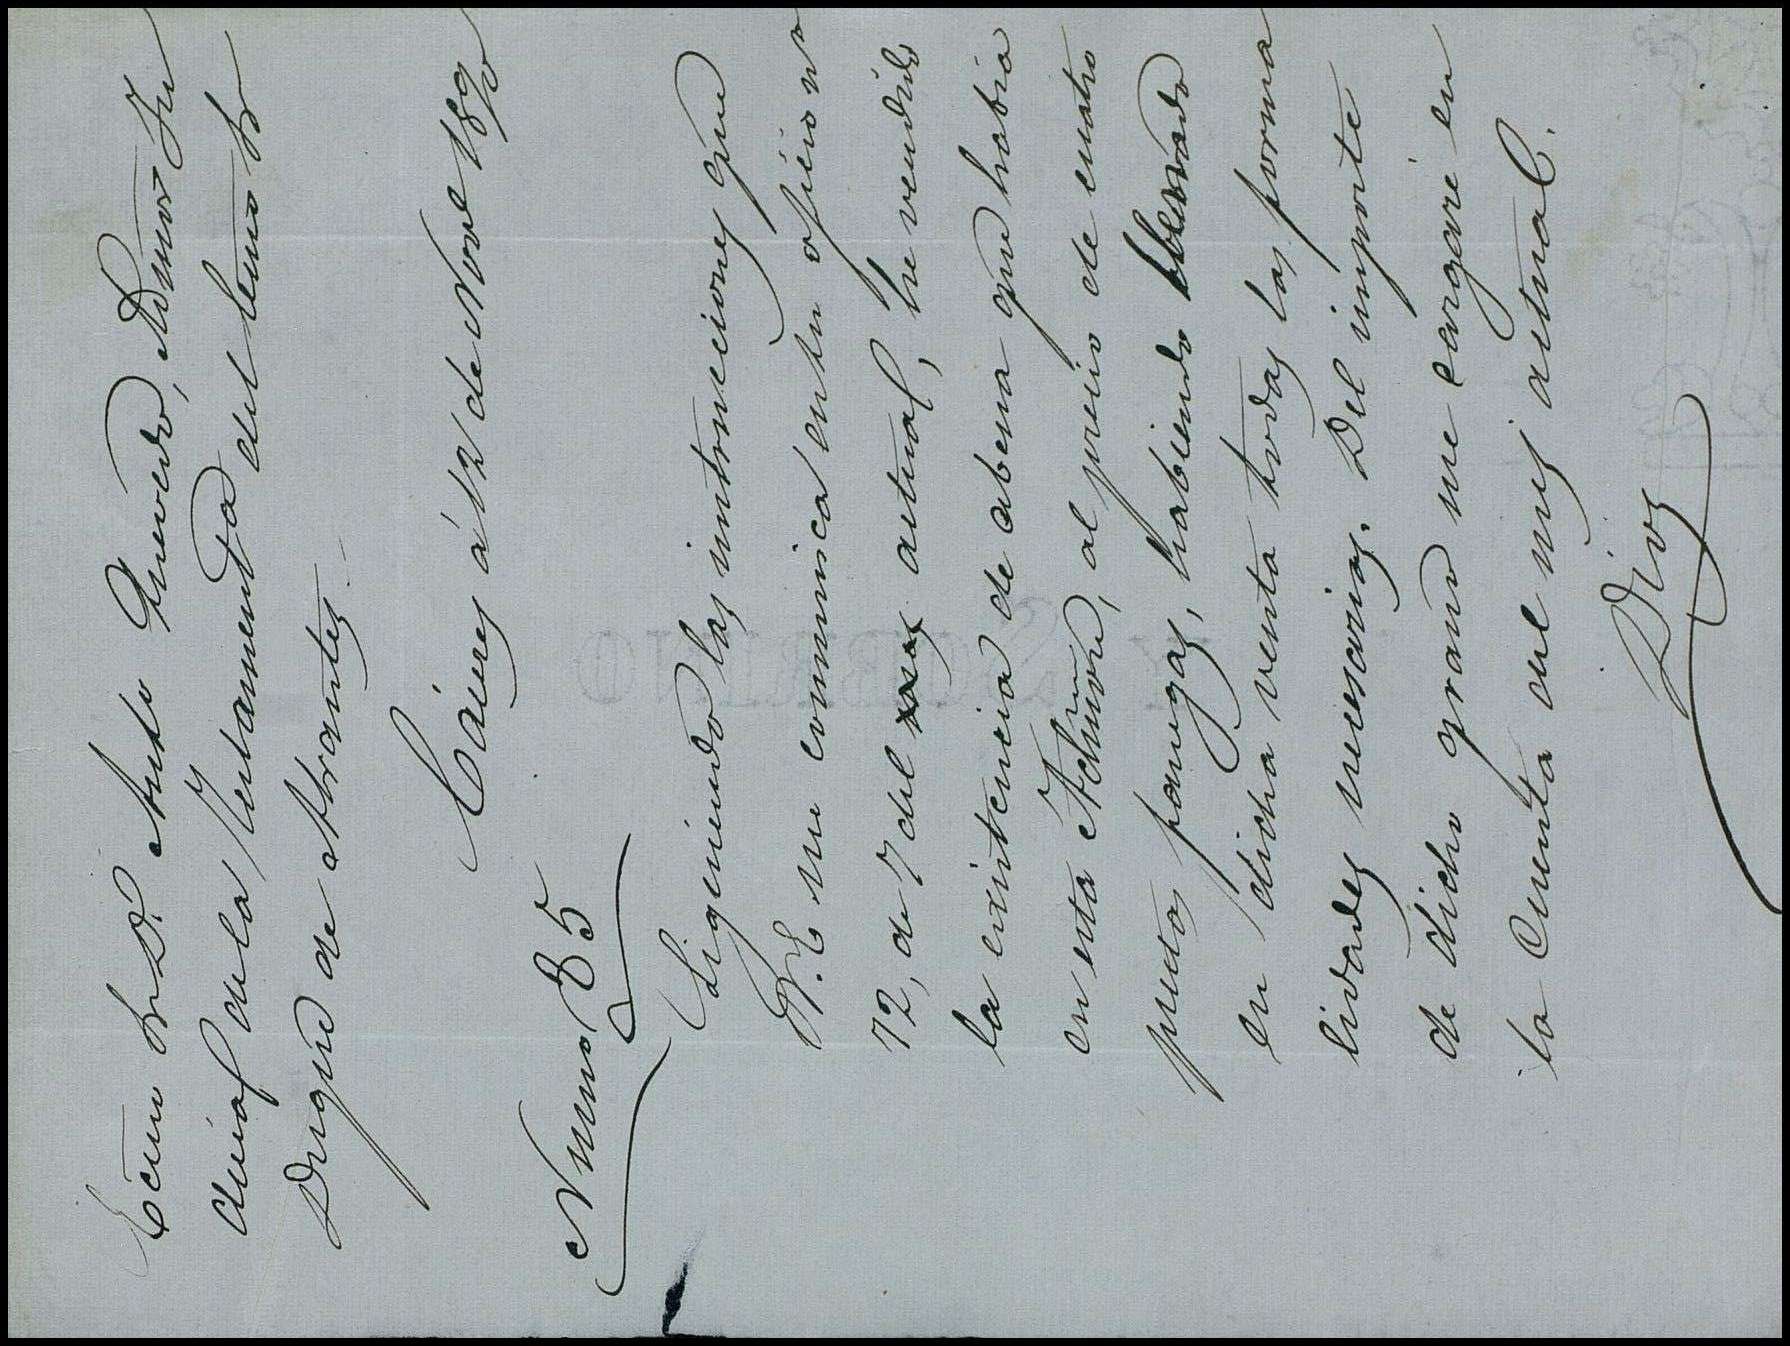 Ecmo Sr D. Anto Quevedo, Admor Ju
dicial de la Testamentaria del Ecmo Sr
Duque de Abrantes.
Cáceres á 12 de Nove 1890
Numo 85
Siguiendo las instrucciones que
V. E me comunica en su oficio no
72, de 7 del actual, he vendido
la existencia de abena que habia
en esta Admon, al precio de cuatro
pesetas fanegas, habiendo observado
en dicha venta todas las forma
lidades necesarias. Del importe
de dicho grano me cargaré en
la Cuenta del mes actual.
Dios
Y SOBRINO